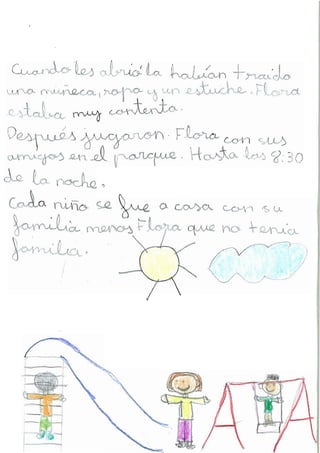 Cuando les abrió la habían traido
una muñeca, ropa y un estuche. Flora
estaba muy contenta.
Después jugaron. Flora con sus
amigos en el parque. Hasta las 8:30
de la noche.
Cada niño se fue a casa con su
familia menos Flora que no tenía
familia.